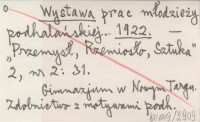 Wystawa prac młodzieży
podhalańskiej.. 1922. —
„Przemysł, Rzemiosło, Sztuka"
2, nr 2: 31.
Gimnazjum w Nowym Targu.
Zdobnictwo z motywami podh.